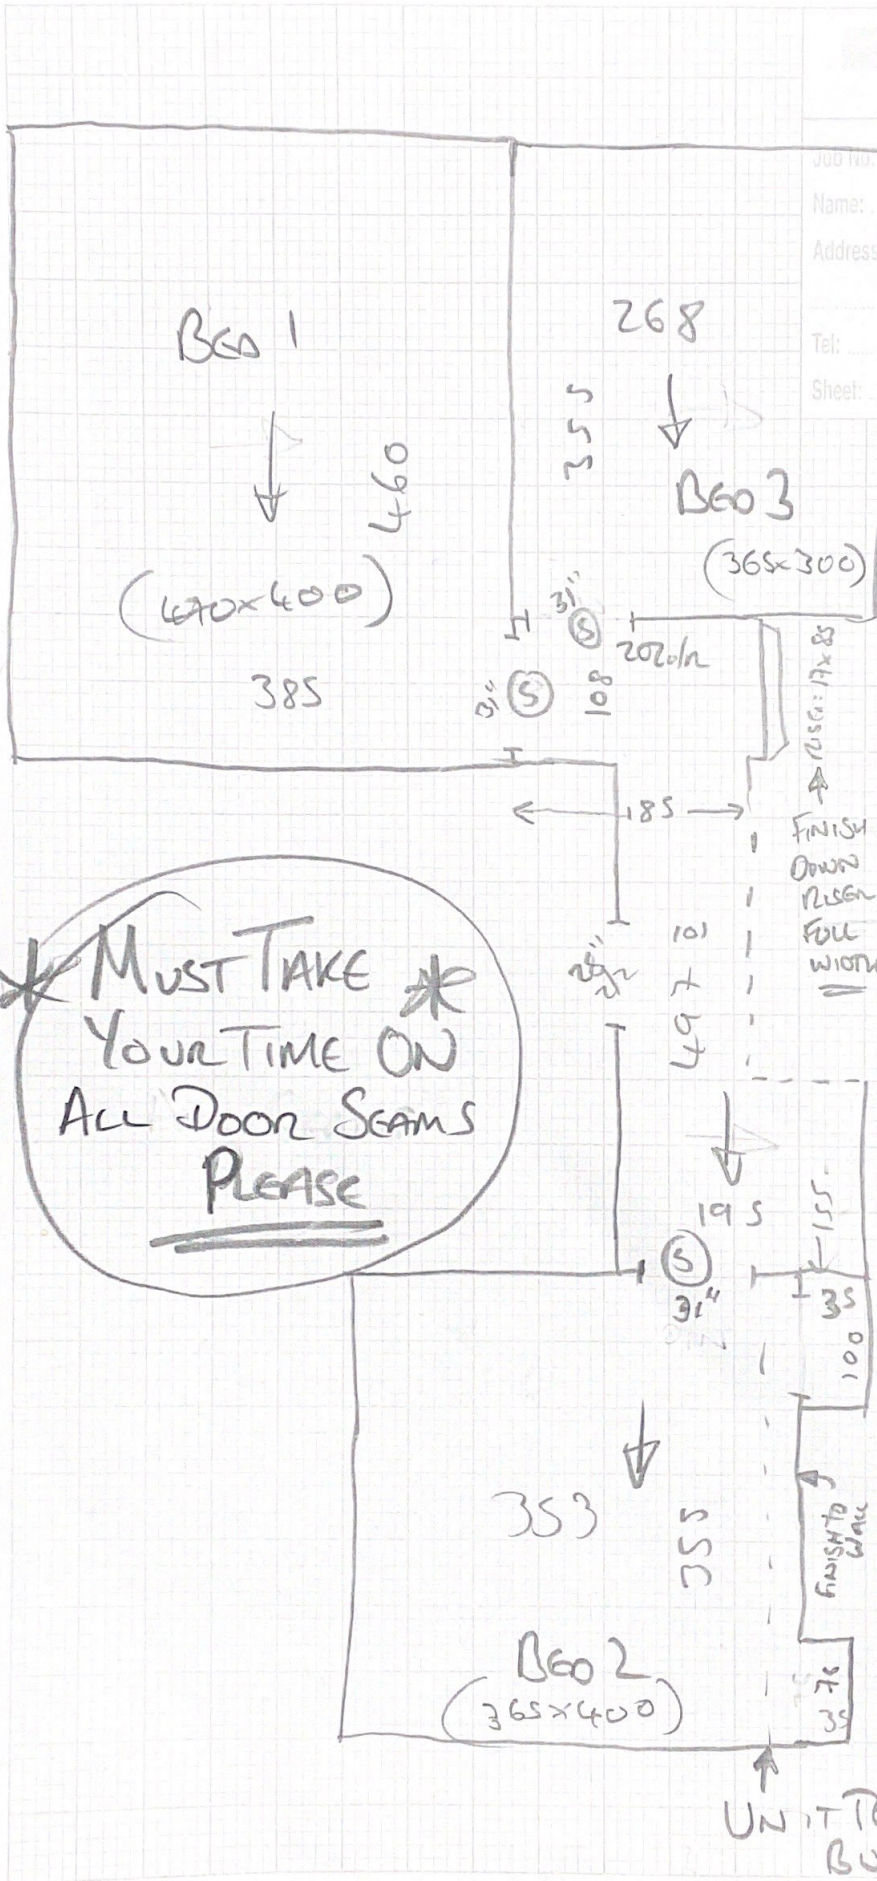 Job No.
Name:
Address
Tel:
Sheet:
BED 1
460
(470x400)
385
268
355
BED 3
(365x300)
31"
S
202o/a
31"
S
108
RISER: 17x85
185
FINISH
DOWN
RISER
FULL
WIDTH
* MUST TAKE *
YOUR TIME ON
ALL DOOR SEAMS
PLEASE
101
497
195
155
S
31"
35
100
353
355
FINISH TO
WALL
BED 2
(365x400)
75
35
UNIT